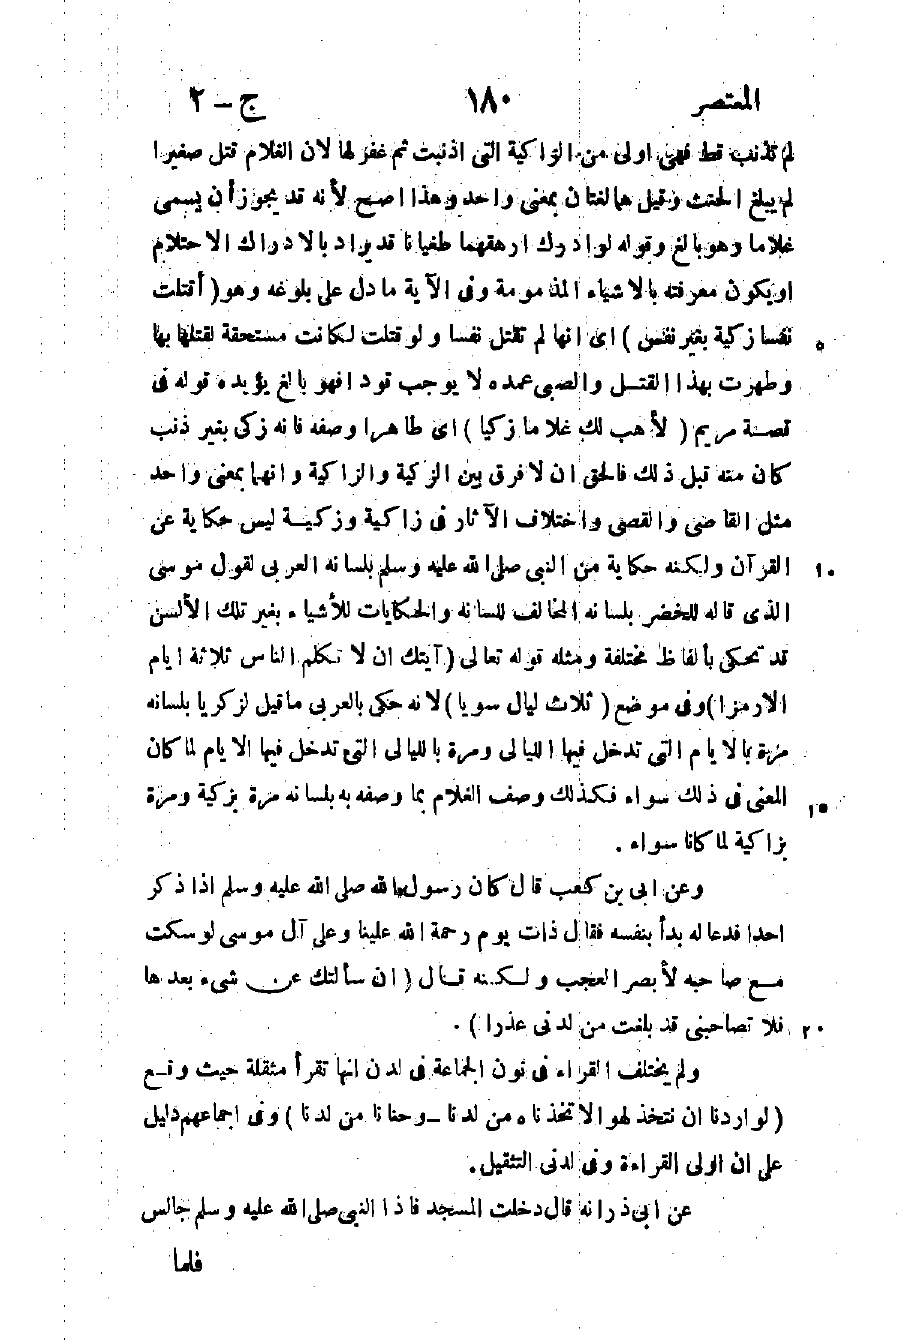 المعتصر ١٨٠ ج - ٢
لم تذنب قط فهى اولى من الزاكية التى اذنبت ثم غفر لها لان الغلام قتل صغيرا
لم يبلغ الحنث وقيل هما لغتان بمعنى واحد وهذا اصح لأنه قد يجوز أن يسمى
غلاما وهو بالغ وقوله لو ادرك ارهقهما طغيانا قد يراد بالادراك الاحتلام
او يكون معرفته بالاشياء المذمومة وفى الآية ما دل على بلوغه وهو (أقتلت
نفسا زكية بغير نفس) اى انها لم تقتل نفسا ولو قتلت لكانت مستحقة لقتلها بها ٥
وطهرت بهذا القتل والصبى عمده لا يوجب قودا فهو بالغ يؤيده قوله فى
قصة مريم (لأهب لك غلاما زكيا) اى طاهرا وصفه فانه زكى بغير ذنب
كان منه قبل ذلك فالحق ان لا فرق بين الزكية والزاكية وانهما بمعنى واحد
مثل القاضى والقصى واختلاف الآثار فى زاكية وزكية ليس حكاية عن
القرآن ولكنه حكاية من النبى صلى الله عليه وسلم بلسانه العربى لقول موسى ١٠
الذى قاله للخضر بلسانه المخالف للسانه والحكايات للأشياء بغير تلك الألسن
قد تحكى بألفاظ مختلفة ومثله قوله تعالى (آيتك ان لا تكلم الناس ثلاثة ايام
الا رمزا) وفى موضع (ثلاث ليال سويا) لانه حكى بالعربى ماقيل لزكريا بلسانه
مرة بالايام التى تدخل فيها الليالى ومرة بالليالى التى تدخل فيها الايام لما كان
المعنى فى ذلك سواء فكذلك وصف الغلام بما وصفه به بلسانه مرة بزكية ومرة ١٥
بزاكية لما كانا سواء .
وعن ابى بن كعب قال كان رسول الله صلى الله عليه وسلم اذا ذكر
احدا فدعا له بدأ بنفسه فقال ذات يوم رحمة الله علينا وعلى آل موسى لو سكت
مع صاحبه لأبصر العجب ولكنه قال (ان سألتك عن شىء بعدها
فلا تصاحبنى قد بلغت من لدنى عذرا) . ٢٠
ولم يختلف القراء فى نون الجماعة فى لدن انها تقرأ مثقلة حيث وقع
(لو اردنا ان نتخذ لهوا لاتخذناه من لدنا - وحنانا من لدنا) وفى اجماعهم دليل
على ان اولى القراءة وفى لدنى التثقيل .
عن ابى ذر انه قال دخلت المسجد فاذا النبى صلى الله عليه وسلم جالس
فلما